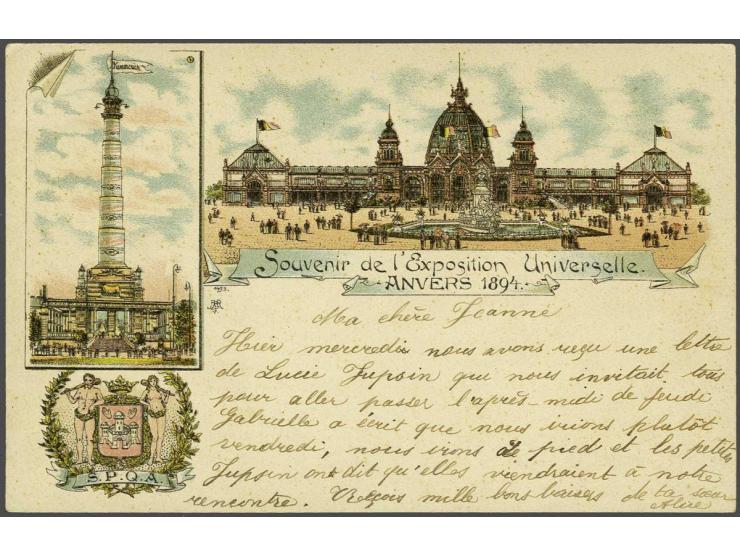 Souvenir de l'Exposition Universelle.
ANVERS 1894.
Ma chère Jeanne
Hier mercredi nous avons reçu une lettre
de Lucie Jupsin qui nous invitait tous
pour aller passer l'après-midi de jeudi
Gabrielle a écrit que nous irions plutôt
vendredi, nous irons à pied et les petites
Jupsin ont dit qu'elles viendraient à notre
rencontre. Reçois mille bons baisers de ta sœur
Alice
S.P.Q.A.